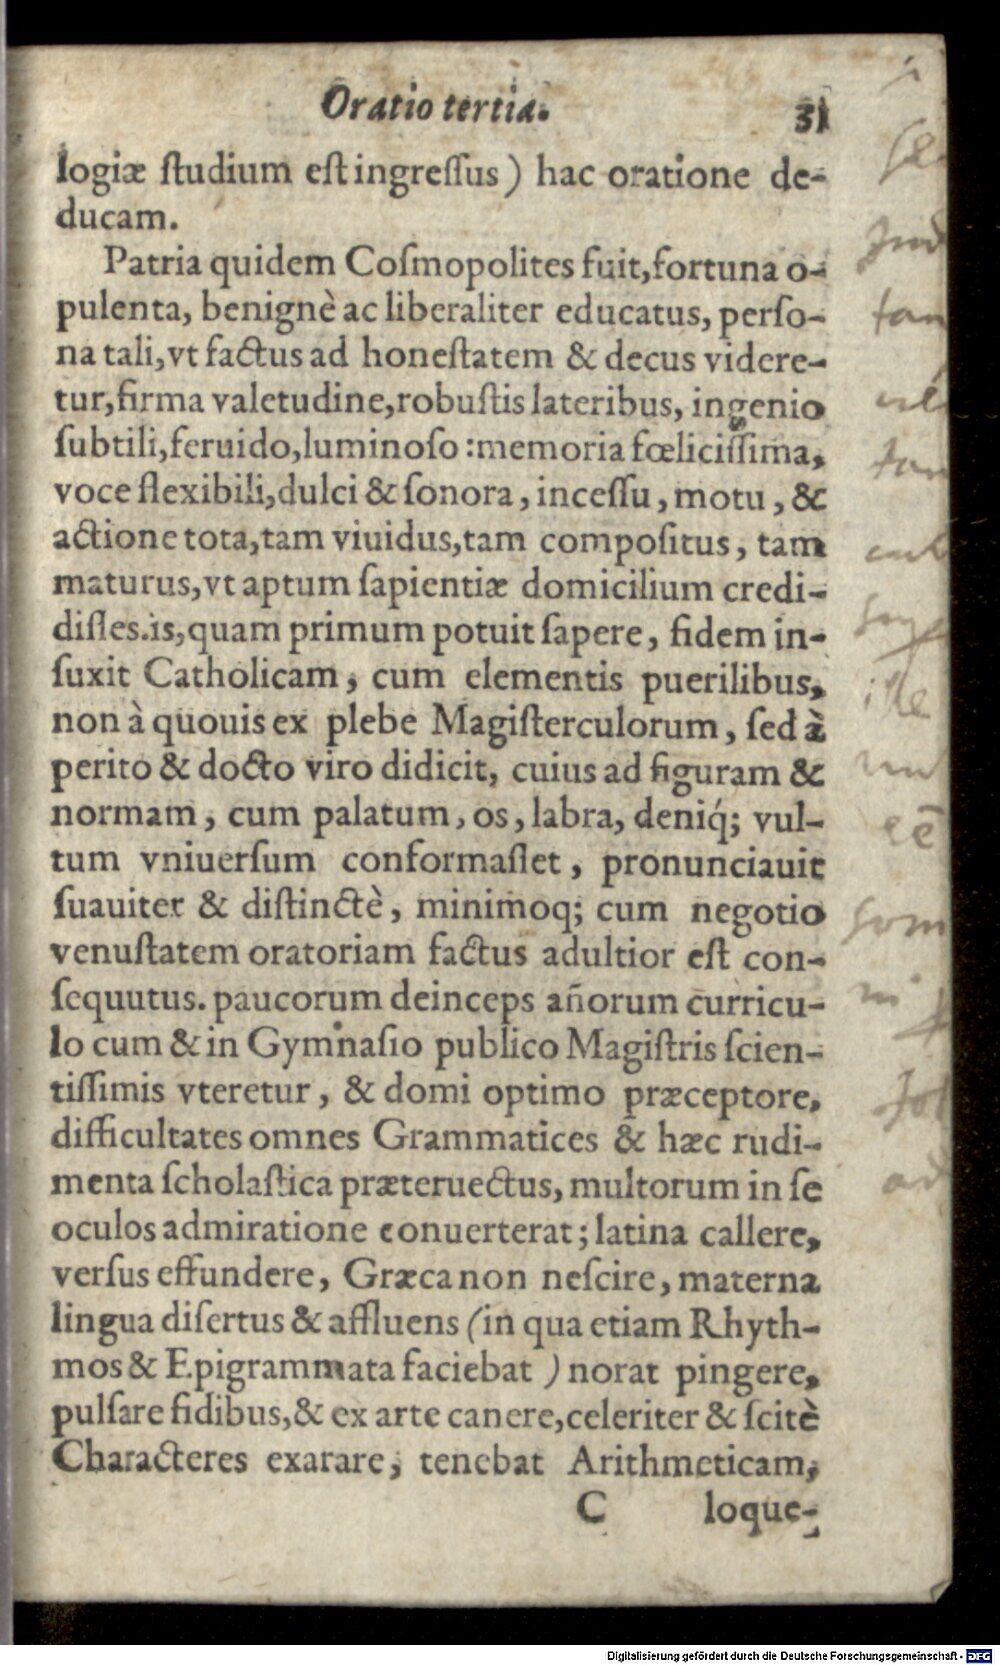 Oratio tertia. 31
logiæ ſtudium eſt ingreſſus) hac oratione de-
ducam.
Patria quidem Coſmopolites fuit, fortuna o-
pulenta, benignè ac liberaliter educatus, perſo-
na tali, vt factus ad honeſtatem & decus videre-
tur, firma valetudine, robuſtis lateribus, ingenio
ſubtili, feruido, luminoſo: memoria fœliciſſima,
voce flexibili, dulci & ſonora, inceſſu, motu, &
actione tota, tam viuidus, tam compoſitus, tam
maturus, vt aptum ſapientiæ domicilium credi-
diſſes. is, quam primum potuit ſapere, fidem in-
ſuxit Catholicam, cum elementis puerilibus,
non à quouis ex plebe Magiſterculorum, ſed à
perito & docto viro didicit, cuius ad figuram &
normam, cum palatum, os, labra, deniq́; vul-
tum vniuerſum conformaſſet, pronunciauit
ſuauiter & diſtinctè, minimoq; cum negotio
venuſtatem oratoriam factus adultior eſt con-
ſequutus. paucorum deinceps añorum curricu-
lo cum & in Gymnaſio publico Magiſtris ſcien-
tiſſimis vteretur, & domi optimo præceptore,
difficultates omnes Grammatices & hæc rudi-
menta ſcholaſtica præteruectus, multorum in ſe
oculos admiratione conuerterat; latina callere,
verſus effundere, Græca non neſcire, materna
lingua diſertus & affluens (in qua etiam Rhyth-
mos & Epigrammata faciebat) norat pingere,
pulſare fidibus, & ex arte canere, celeriter & ſcitè
Characteres exarare, tenebat Arithmeticam,
C loque-
tan
tan
ille
ad
Digitalisierung gefördert durch die Deutsche Forschungsgemeinschaft - DFG